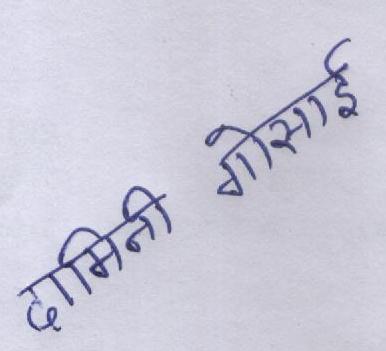 दामिनी गोसाई